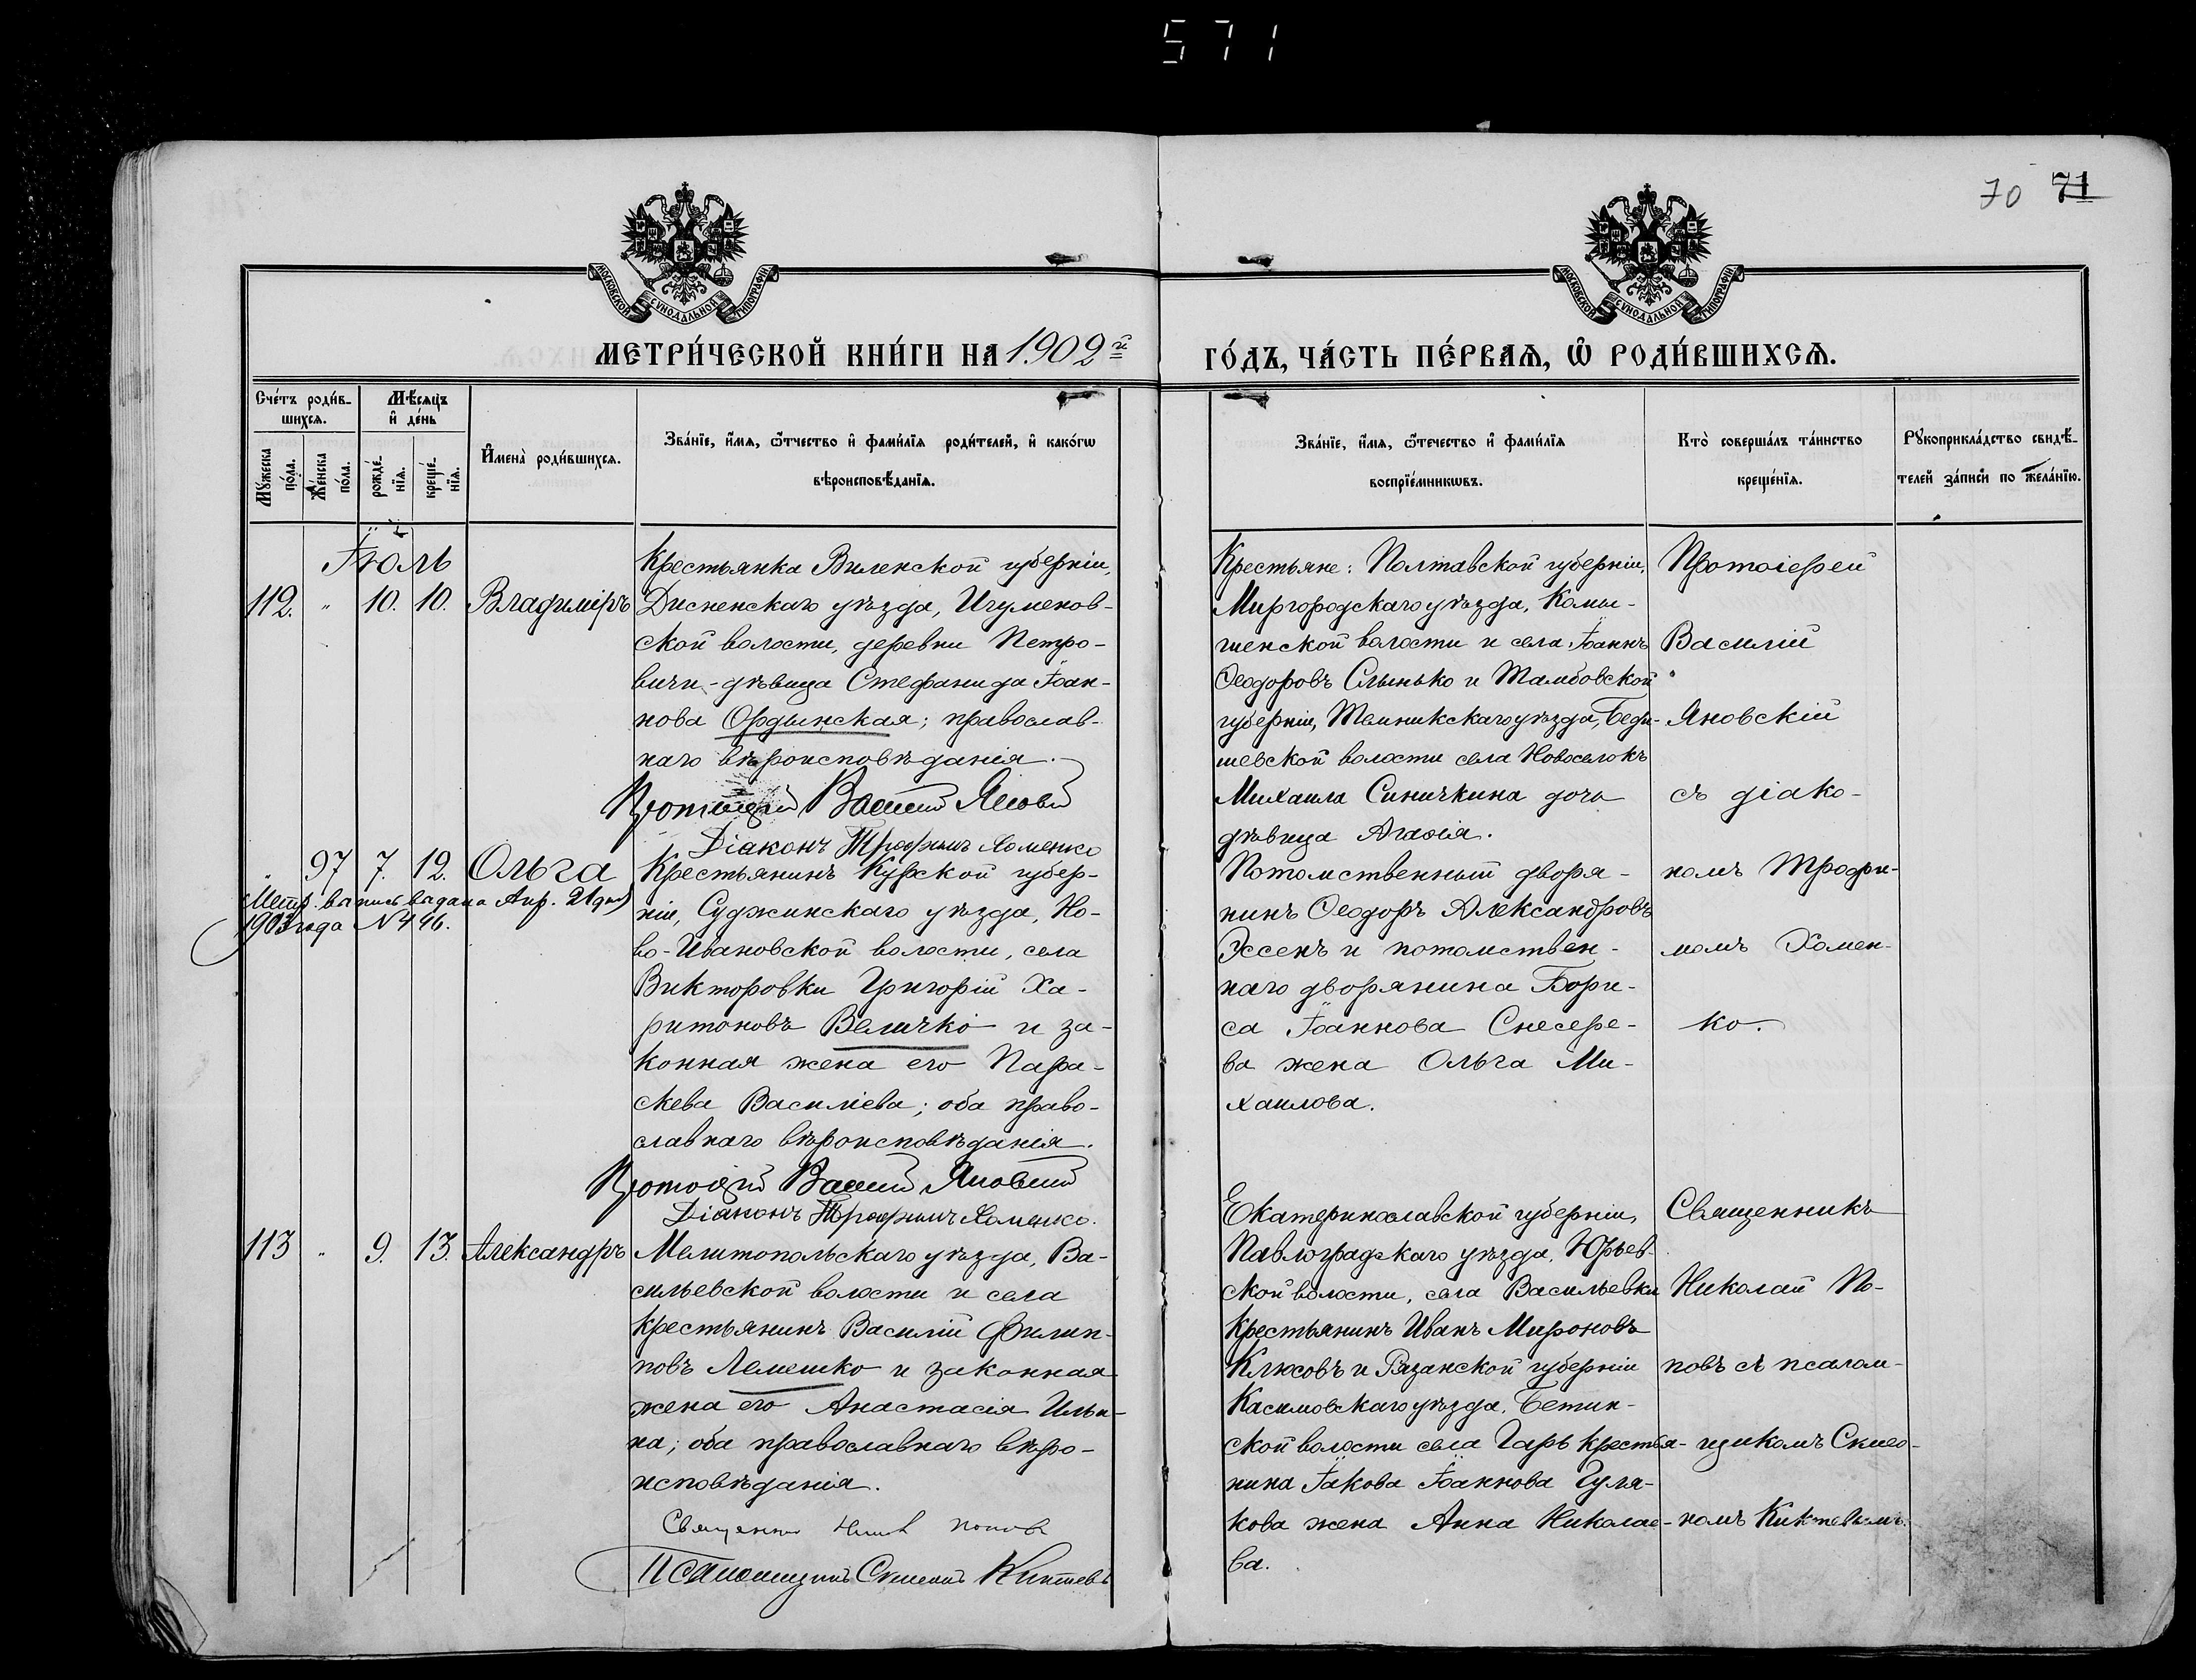 571
70 71
МОСКОВСКОЙ СѴНОДАЛЬНОЙ ТИПОГРАФІИ
МОСКОВСКОЙ СѴНОДАЛЬНОЙ ТИПОГРАФІИ
МЕТРИ́ЧЕСКОЙ КНИ́ГИ НА 1902й
ГО́ДЪ, ЧА́СТЬ ПЕ́РВАѦ, Ѡ҆ РОДИ́ВШИХСѦ.
Сче́тъ роди́в-
шихсѧ.
Мѣ́сяцъ
и҆ де́нь
Мꙋ́жеска
по́ла.
Же́нска
по́ла.
рожде́-
нїѧ.
креще́-
нїѧ.
И҆мена̀ роди́вшихсѧ.
Зва́нїе, и҆́мѧ, ѻ҆́тчество и҆ фами́лїѧ роди́телей, и҆ како́гѡ
вѣроисповѣ́данїѧ.
Зва́нїе, и҆́мѧ, ѻ҆́течество и҆ фами́лїѧ
воспрїе́мникѡвъ.
Кто̀ соверша́лъ та́инство
креще́нїѧ.
Рꙋкоприкла́дство свидѣ́-
телей за́писи по жела́нїю.
Іюль
112. " 10. 10. Владиміръ
Крестьянка Виленской губерніи,
Дисненскаго уѣзда, Игуменов-
ской волости, деревни Петро-
вичи - дѣвица Стефанида Іоан-
нова Ордынская; православ-
наго вѣроисповѣданія.
Протоіерей Василій Яновскій
Діаконъ Трофимъ Хоменко
Крестьяне: Полтавской губерніи,
Миргородскаго уѣзда, Комы-
шенской волости и села Іоаннъ
Ѳеодоровъ Слынько и Тамбовской
губерніи, Темникскаго уѣзда, Беди-
шевской волости села Новоселокъ
Михаила Синичкина дочь
дѣвица Агаѳія.
Протоіерей
Василій
Яновскій
съ діако-
номъ Трофи-
момъ Хомен-
ко.
" 97 7. 12. Ольга
Метр. выпись выдана Апр. 21 дня
1903 года № 446.
Крестьянинъ Курской губер-
ніи, Суджинскаго уѣзда, Но-
во-Ивановской волости, села
Викторовки Григорій Ха-
ритоновъ Величко и за-
конная жена его Пара-
скева Василіева; оба право-
славнаго вѣроисповѣданія.
Протоіерей Василій Яновскій
Діаконъ Трофимъ Хоменко.
Потомственный дворя-
нинъ Ѳеодоръ Александровъ
Эссенъ и потомствен-
наго дворянина Бори-
са Іоаннова Снесаре-
ва жена Ольга Ми-
хаилова.
113 " 9. 13. Александръ
Мелитопольскаго уѣзда, Ва-
сильевской волости и села
крестьянинъ Василій Филип-
повъ Лемешко и законная
жена его Анастасія Ильи-
на; оба православнаго вѣро-
исповѣданія.
Священникъ Попов
Псаломщикъ Симеонъ Киктевъ
Екатеринославской губерніи,
Павлоградскаго уѣзда, Юрьев-
ской волости, села Васильевки
крестьянинъ Иванъ Мироновъ
Клюсовъ и Рязанской губерніи
Касимовскаго уѣзда, Бетин-
ской волости села Гарь крестья-
нина Іакова Іоаннова Гуля-
кова жена Анна Николае-
ва.
Священникъ
Николай По-
повъ съ псалом-
щикомъ Симео-
номъ Киктевымъ.